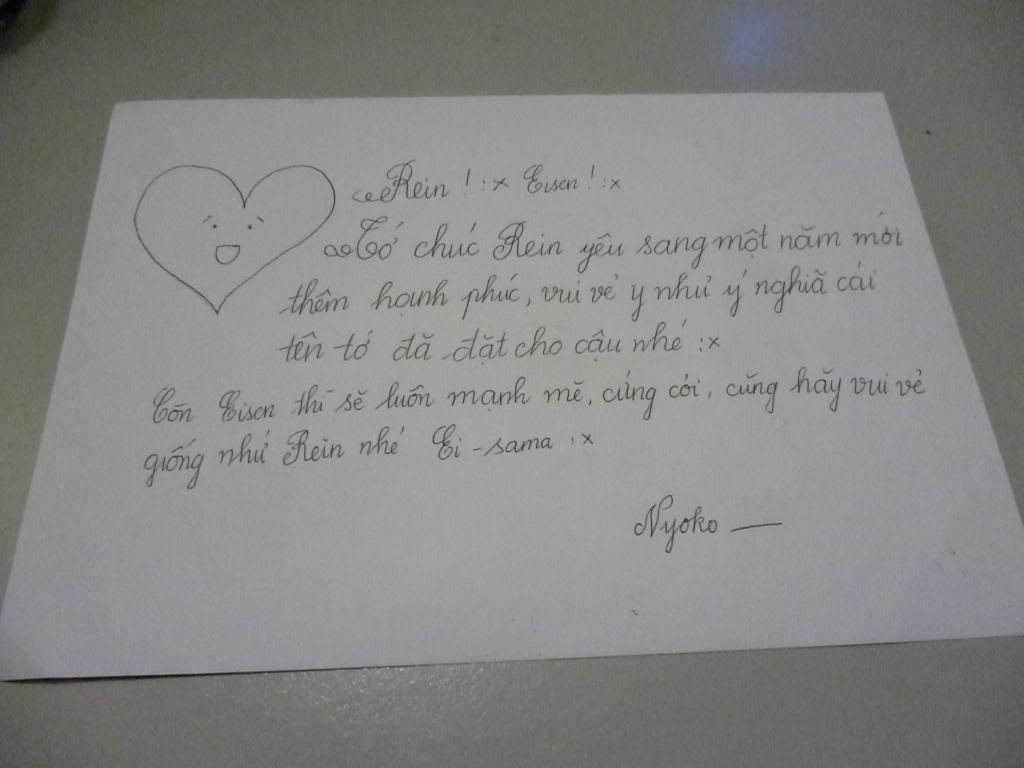 Rein ! :x Eisen ! :x
Tớ chúc Rein yêu sang một năm mới
thêm hạnh phúc, vui vẻ y như ý nghĩa cái
tên tớ đã đặt cho cậu nhé :x
Còn Eisen thì sẽ luôn mạnh mẽ, cứng cỏi, cũng hãy vui vẻ
giống như Rein nhé Ei-sama :x
Nyoko —